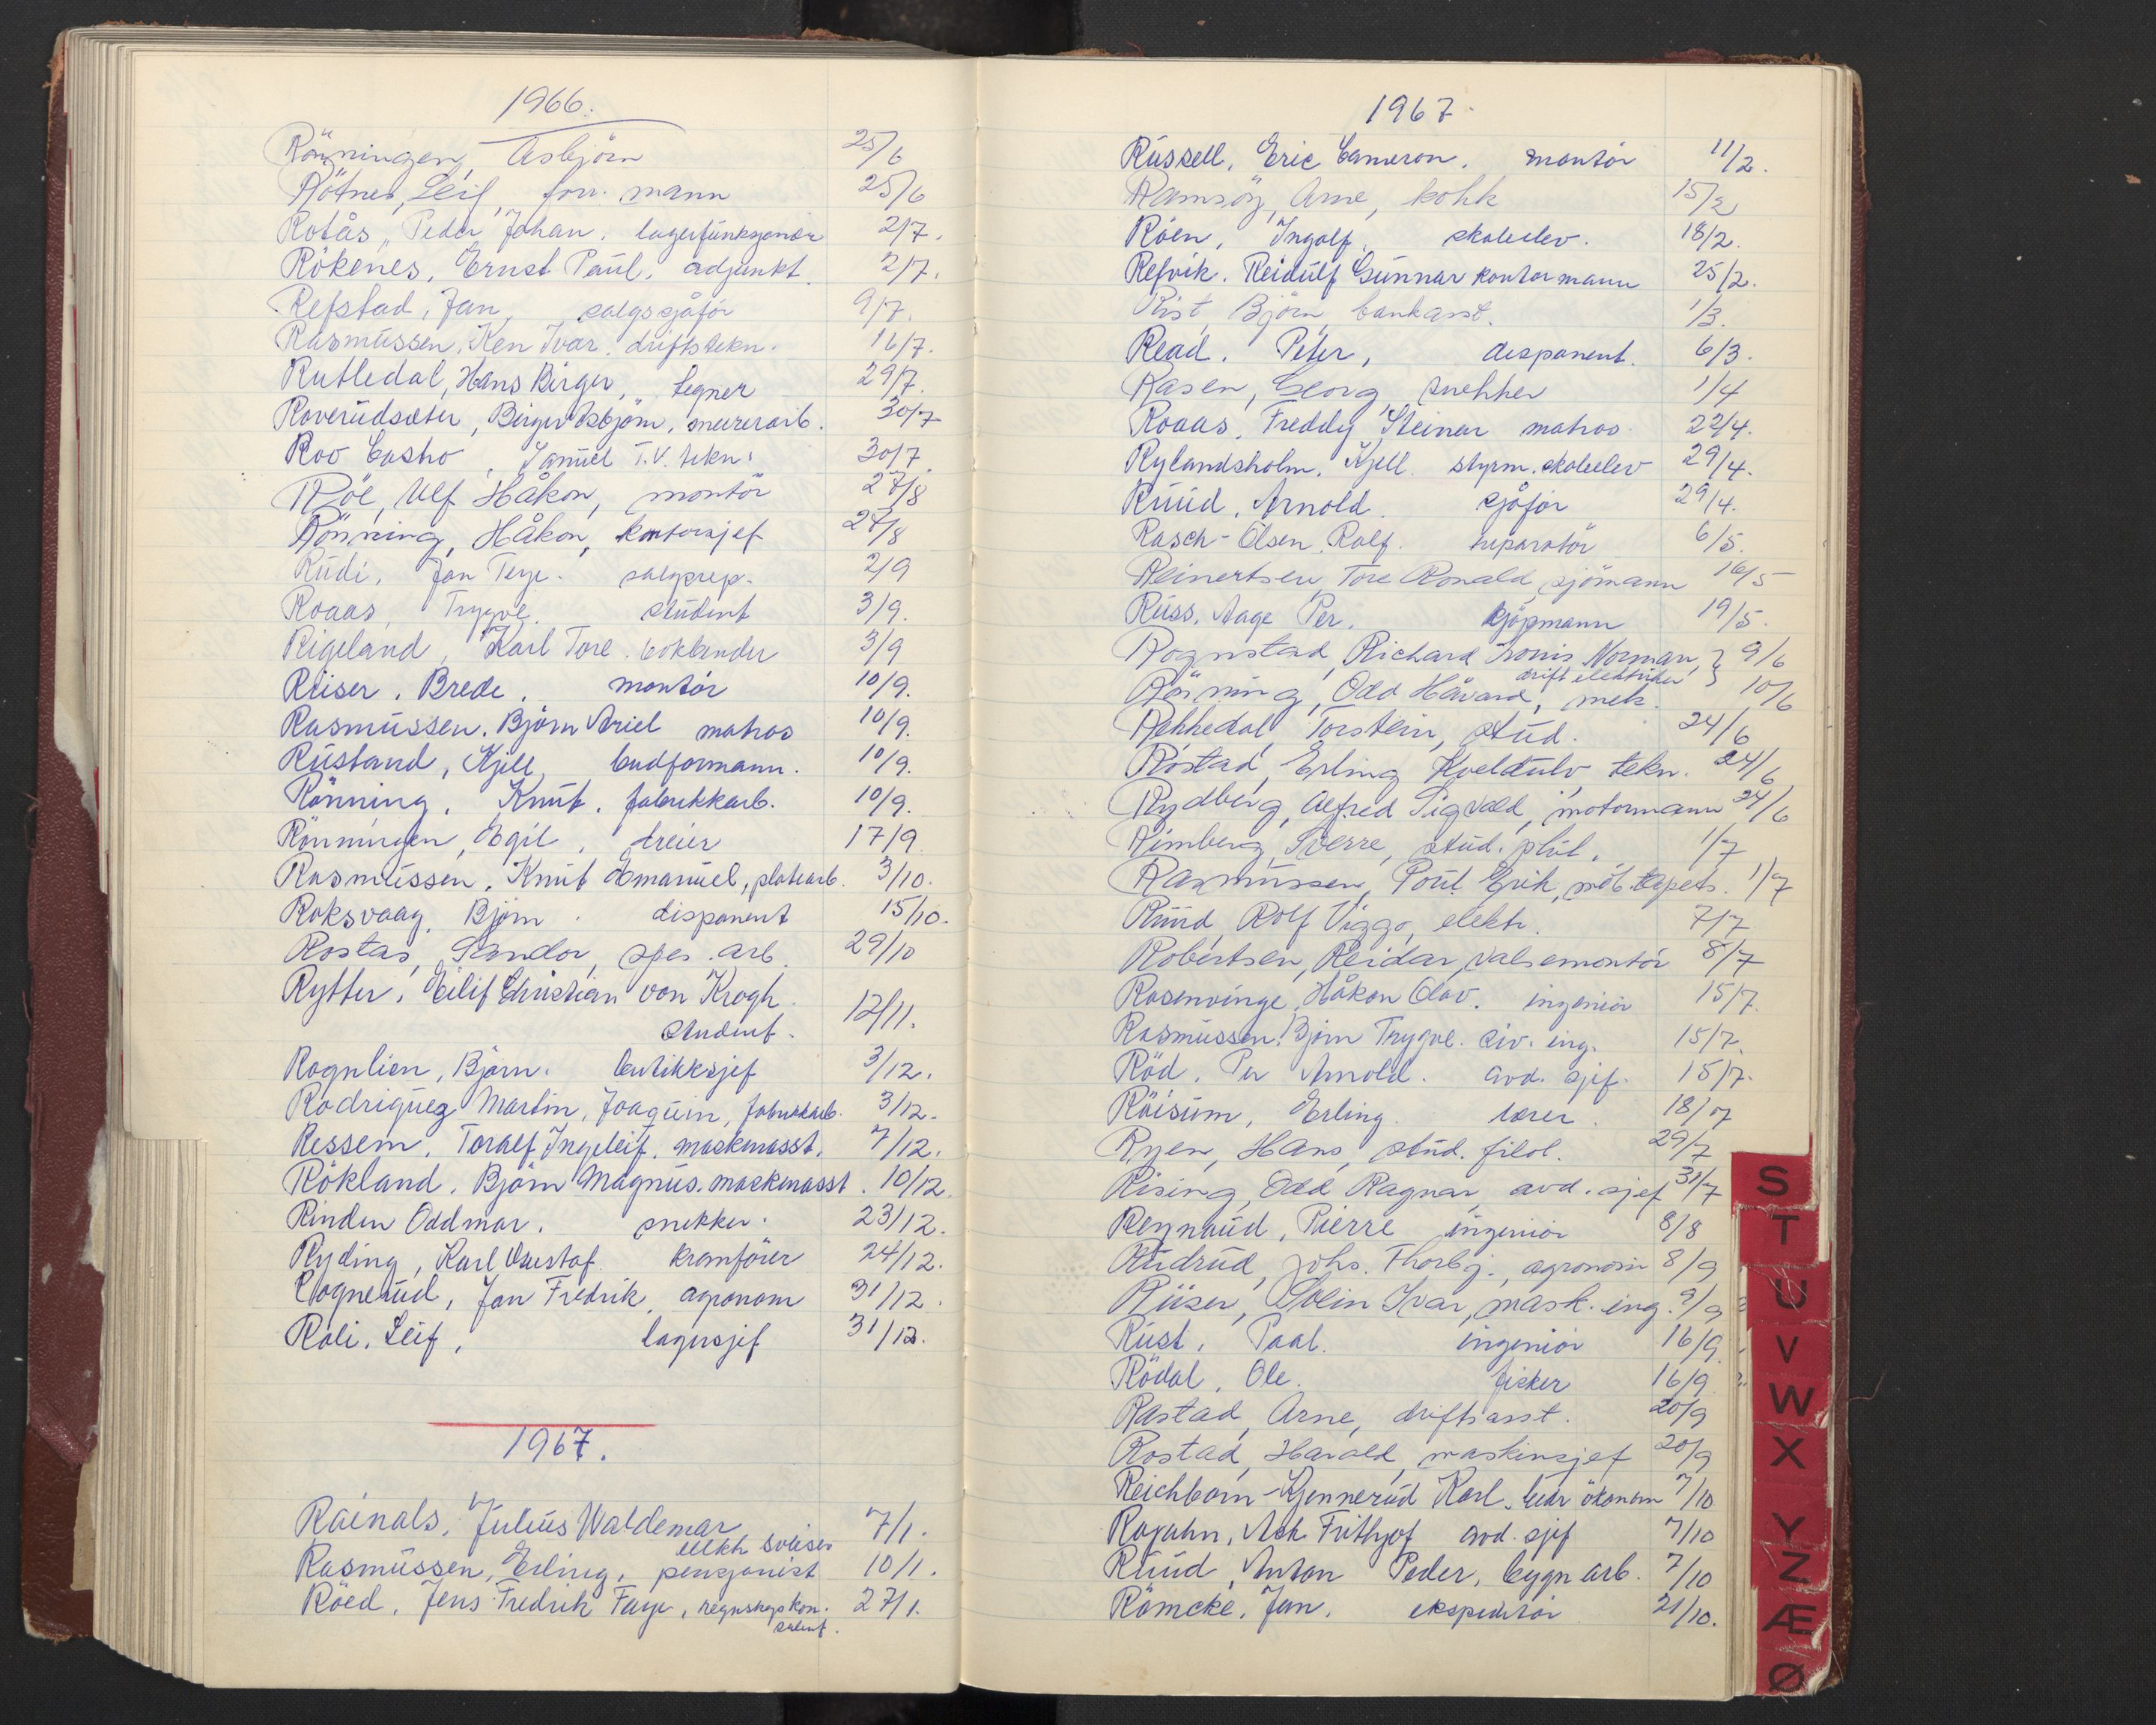 1966.
Rönningen, Asbjörn 25/6
Rötnes, Leif, forr. mann 25/6
Rotås, Peder Johan. lagerfunksjonær 2/7.
Rökenes, Ernst Paul, adjunkt. 2/7.
Refstad, Jan, salgssjåför 9/7.
Rasmussen, Ken Ivar. driftstekn. 16/7.
Rutledal, Hans Birger, tegner 29/7.
Roverudsæter, Birger Asbjörn, murerarb. 30/7
Roo Castro, Samuel T.V. tekn. 30/7.
Röe, Ulf Håkon, montör 27/8
Rönning, Håkon, kontorsjef 27/8
Rudi, Jan Terje. salgsrep. 2/9
Roaas, Trygve. student 3/9.
Rigeland, Karl Tore. bokbinder 3/9
Riiser. Brede. montör 10/9.
Rasmussen. Björn Ariel matros 10/9.
Rustand, Kjell, budformann. 10/9.
Rönning, Knut, fabrikkarb. 10/9.
Rönningen, Egil, dreier 17/9
Rasmussen. Knut Emanuel, platearb. 3/10.
Roksvaag, Björn. disponent 15/10.
Rostas, Sandor, spes. arb. 29/10
Rytter, Eilif Christian von Krogh.
student. 12/11.
Rognlien, Björn. butikksjef 3/12.
Rodriguez Martin, Joaquin, fabrikkarb. 3/12.
Ressem, Toralf Ingeleif, maskinasst. 7/12.
Rökland, Björn Magnus. maskinasst. 10/12.
Rinden Oddmar. snekker. 23/12.
Ryding, Karl Gustaf. kranförer 24/12.
Rognerud, Jan Fredrik, agronom 31/12.
Roli, Leif, lagersjef 31/12.
1967.
Rainals, Julius Waldemar 7/1.
elektr. sveiser
Rasmussen, Erling, pensjonist 10/1.
Röed, Jens Fredrik Faye, regnskapskon. 27/1.
sulent.
1967.
Russell, Eric Cameron. montör 11/2.
Ramsöy, Arne, kokk 15/2
Röen, Ingolf. skoleelev. 18/2.
Refvik. Reidulf Gunnar kontormann 25/2.
Rist, Björn, bankasst. 1/3.
Read. Peter, disponent. 6/3.
Rasen, Georg, snekker 1/4
Roaas, Freddy Steinar matros 22/4.
Rylandsholm, Kjell. styrm. skoleelev 29/4.
Ruud, Arnold. sjåför 29/4.
Rasch-Olsen, Rolf. reparatör 6/5.
Reinertsen, Tore Ronald, sjömann 16/5
Russ, Aage Per. kjöpmann 19/5.
Rognstad, Richard Norman, } 9/6
drift elektriker
Rönning, Odd Håvard, mek. 10/6
Rekkedal, Torstein, stud. 24/6
Röstad, Erling Kveldulv tekn. 24/6
Rydberg, Alfred Sigvald, motormann 24/6
Rimberg, Sverre, stud. phil. 1/7
Rasmussen, Poul Erik, möb. tapets. 1/7
Ruud, Rolf Viggo, elektr. 7/7
Robertsen, Reidar, valsemontör 8/7
Rosenvinge, Håkon Olav. ingeniör 15/7.
Rasmussen. Björn Trygve. siv. ing. 15/7.
Röd. Per Arnold. avd. sjef. 15/7.
Röisum, Erling. lærer. 18/7
Ryen, Hans, stud. filol. 29/7
Rising, Odd Ragnar, avd. sjef 31/7
Reynaud, Pierre ingeniör 8/8
Rudrud, Johs. Thorbj., agronom 8/9
Riiser, Svein Ivar, mask. ing. 9/9
Rust, Paal. ingeniör 16/9.
Rödal, Ole. fisker 16/9
Rastad, Arne, driftsasst. 20/9
Rostad, Harald, maskinsjef 20/9
Reichborn-Kjennerud Karl, siviløkonom 7/10
Rojahn, Ask Frithjof avd. sjef 7/10
Ruud, Anton Peder, bygn arb. 7/10
Römcke, Jan. ekspeditör 21/10.
S
T
U
V
W
X
Y
Z
Æ
Ø